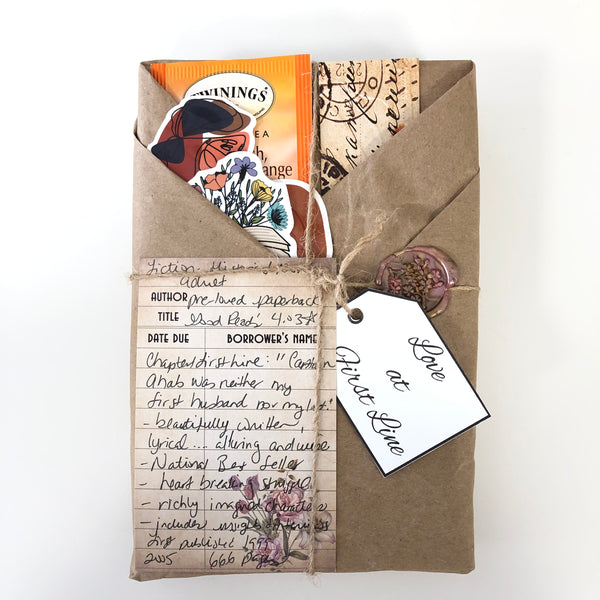 TWININGS
TEA
ange
Fiction
adult
AUTHOR preloved paperback
TITLE Good Reads 4.03☆
DATE DUE BORROWER'S NAME
Chapter first line: "Captain
Ahab was neither my
first husband nor my last."
- beautifully written,
lyrical... alluring and wise
- National Best Seller
- heart breaking struggle
- richly imagined characters
- includes insights
first published 1999
2005 666 pages
Love
at
First Line